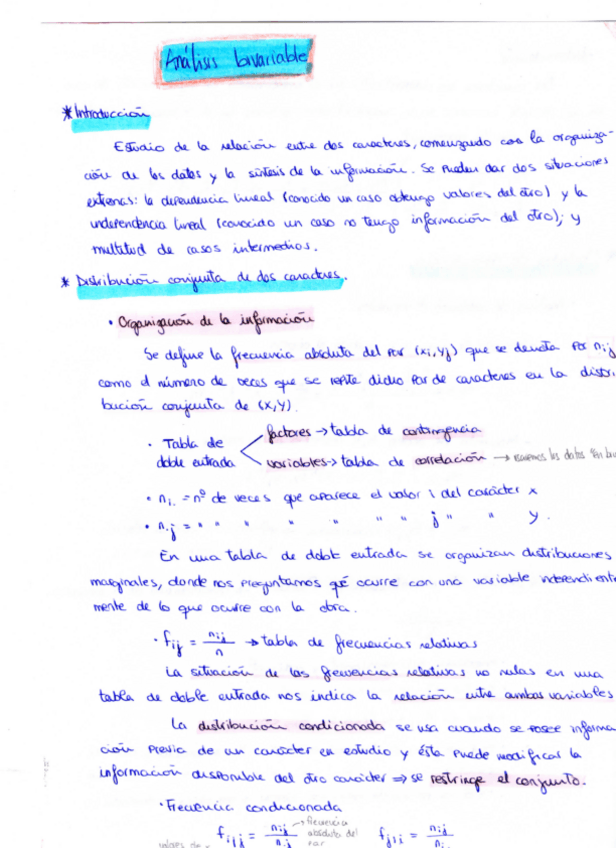 Análisis bivariable
* Introducción
Estudio de la relación entre dos caracteres, comenzando con la organiza-
ción de los datos y la síntesis de la información. Se pueden dar dos situaciones
extremas: la dependencia lineal (conocido un caso obtengo valores del otro) y la
independencia lineal (conocido un caso no tengo información del otro); y
multitud de casos intermedios.
* Distribución conjunta de dos caracteres.
• Organización de la información
Se define la frecuencia absoluta del par (xi, yj) que se denota por nij
como el número de veces que se repite dicho par de caracteres en la distri-
bución conjunta de (x,y).
• Tabla de doble entrada
factores → tabla de contingencia
variables → tabla de correlación → resumimos los datos
• ni. = nº de veces que aparece el valor i del carácter x
• n.j = " " " " " " " j " " y.
En una tabla de doble entrada se organizan distribuciones
marginales, donde nos preguntamos qué ocurre con una variable independiente-
mente de lo que ocurre con la otra.
• fij = nij/n → tabla de frecuencias relativas
La situación de las frecuencias relativas no nulas en una
tabla de doble entrada nos indica la relación entre ambas variables
La distribución condicionada se usa cuando se posee informa-
ción previa de un carácter en estudio y ésta puede modificar la
información disponible del otro carácter ⇒ se restringe el conjunto.
• Frecuencia condicionada
fi/j = nij/n.j → frecuencia absoluta del par fj/i = nij/ni.
valores de